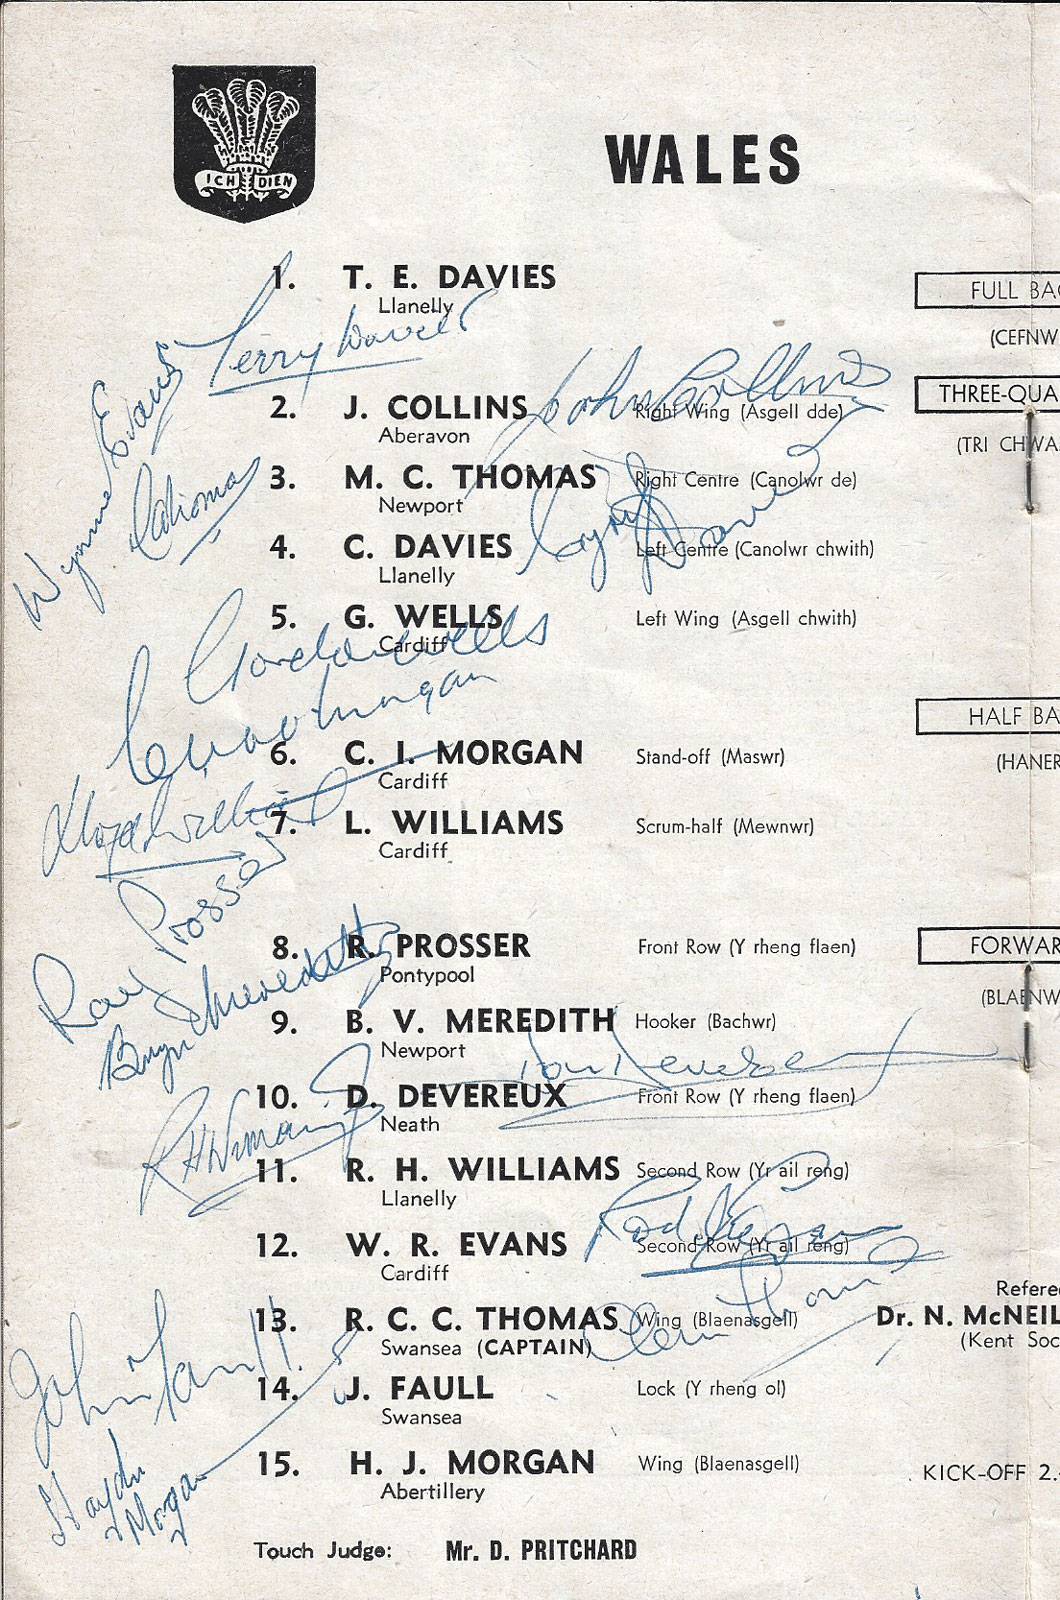 ICH DIEN
WALES
1. T. E. DAVIES
Llanelly
FULL BAC
(CEFNW
Terry Davies
Wynne Evans
John Collins
2. J. COLLINS Right Wing (Asgell dde)
Aberavon
THREE-QUA
(TRI CHWA
3. M. C. THOMAS Right Centre (Canolwr de)
Newport
Cyril Davies
4. C. DAVIES Left Centre (Canolwr chwith)
Llanelly
5. G. WELLS Left Wing (Asgell chwith)
Cardiff
Gordon Wells
Morgan
HALF BA
(HANER
6. C. I. MORGAN Stand-off (Maswr)
Cardiff
Lloyd Williams
7. L. WILLIAMS Scrum-half (Mewnwr)
Cardiff
Ray Prosser
8. R. PROSSER Front Row (Y rheng flaen)
Pontypool
FORWAR
(BLAENW
Bryn Meredith
9. B. V. MEREDITH Hooker (Bachwr)
Newport
Don Devereux
10. D. DEVEREUX Front Row (Y rheng flaen)
Neath
11. R. H. WILLIAMS Second Row (Yr ail reng)
Llanelly
12. W. R. EVANS Second Row (Yr ail reng)
Cardiff
Clem Thomas
13. R. C. C. THOMAS Wing (Blaenasgell)
Swansea (CAPTAIN)
Refere
Dr. N. McNEIL
(Kent Soc
John Faull
14. J. FAULL Lock (Y rheng ol)
Swansea
Haydn Morgan
15. H. J. MORGAN Wing (Blaenasgell)
Abertillery
KICK-OFF 2.
Touch Judge: Mr. D. PRITCHARD